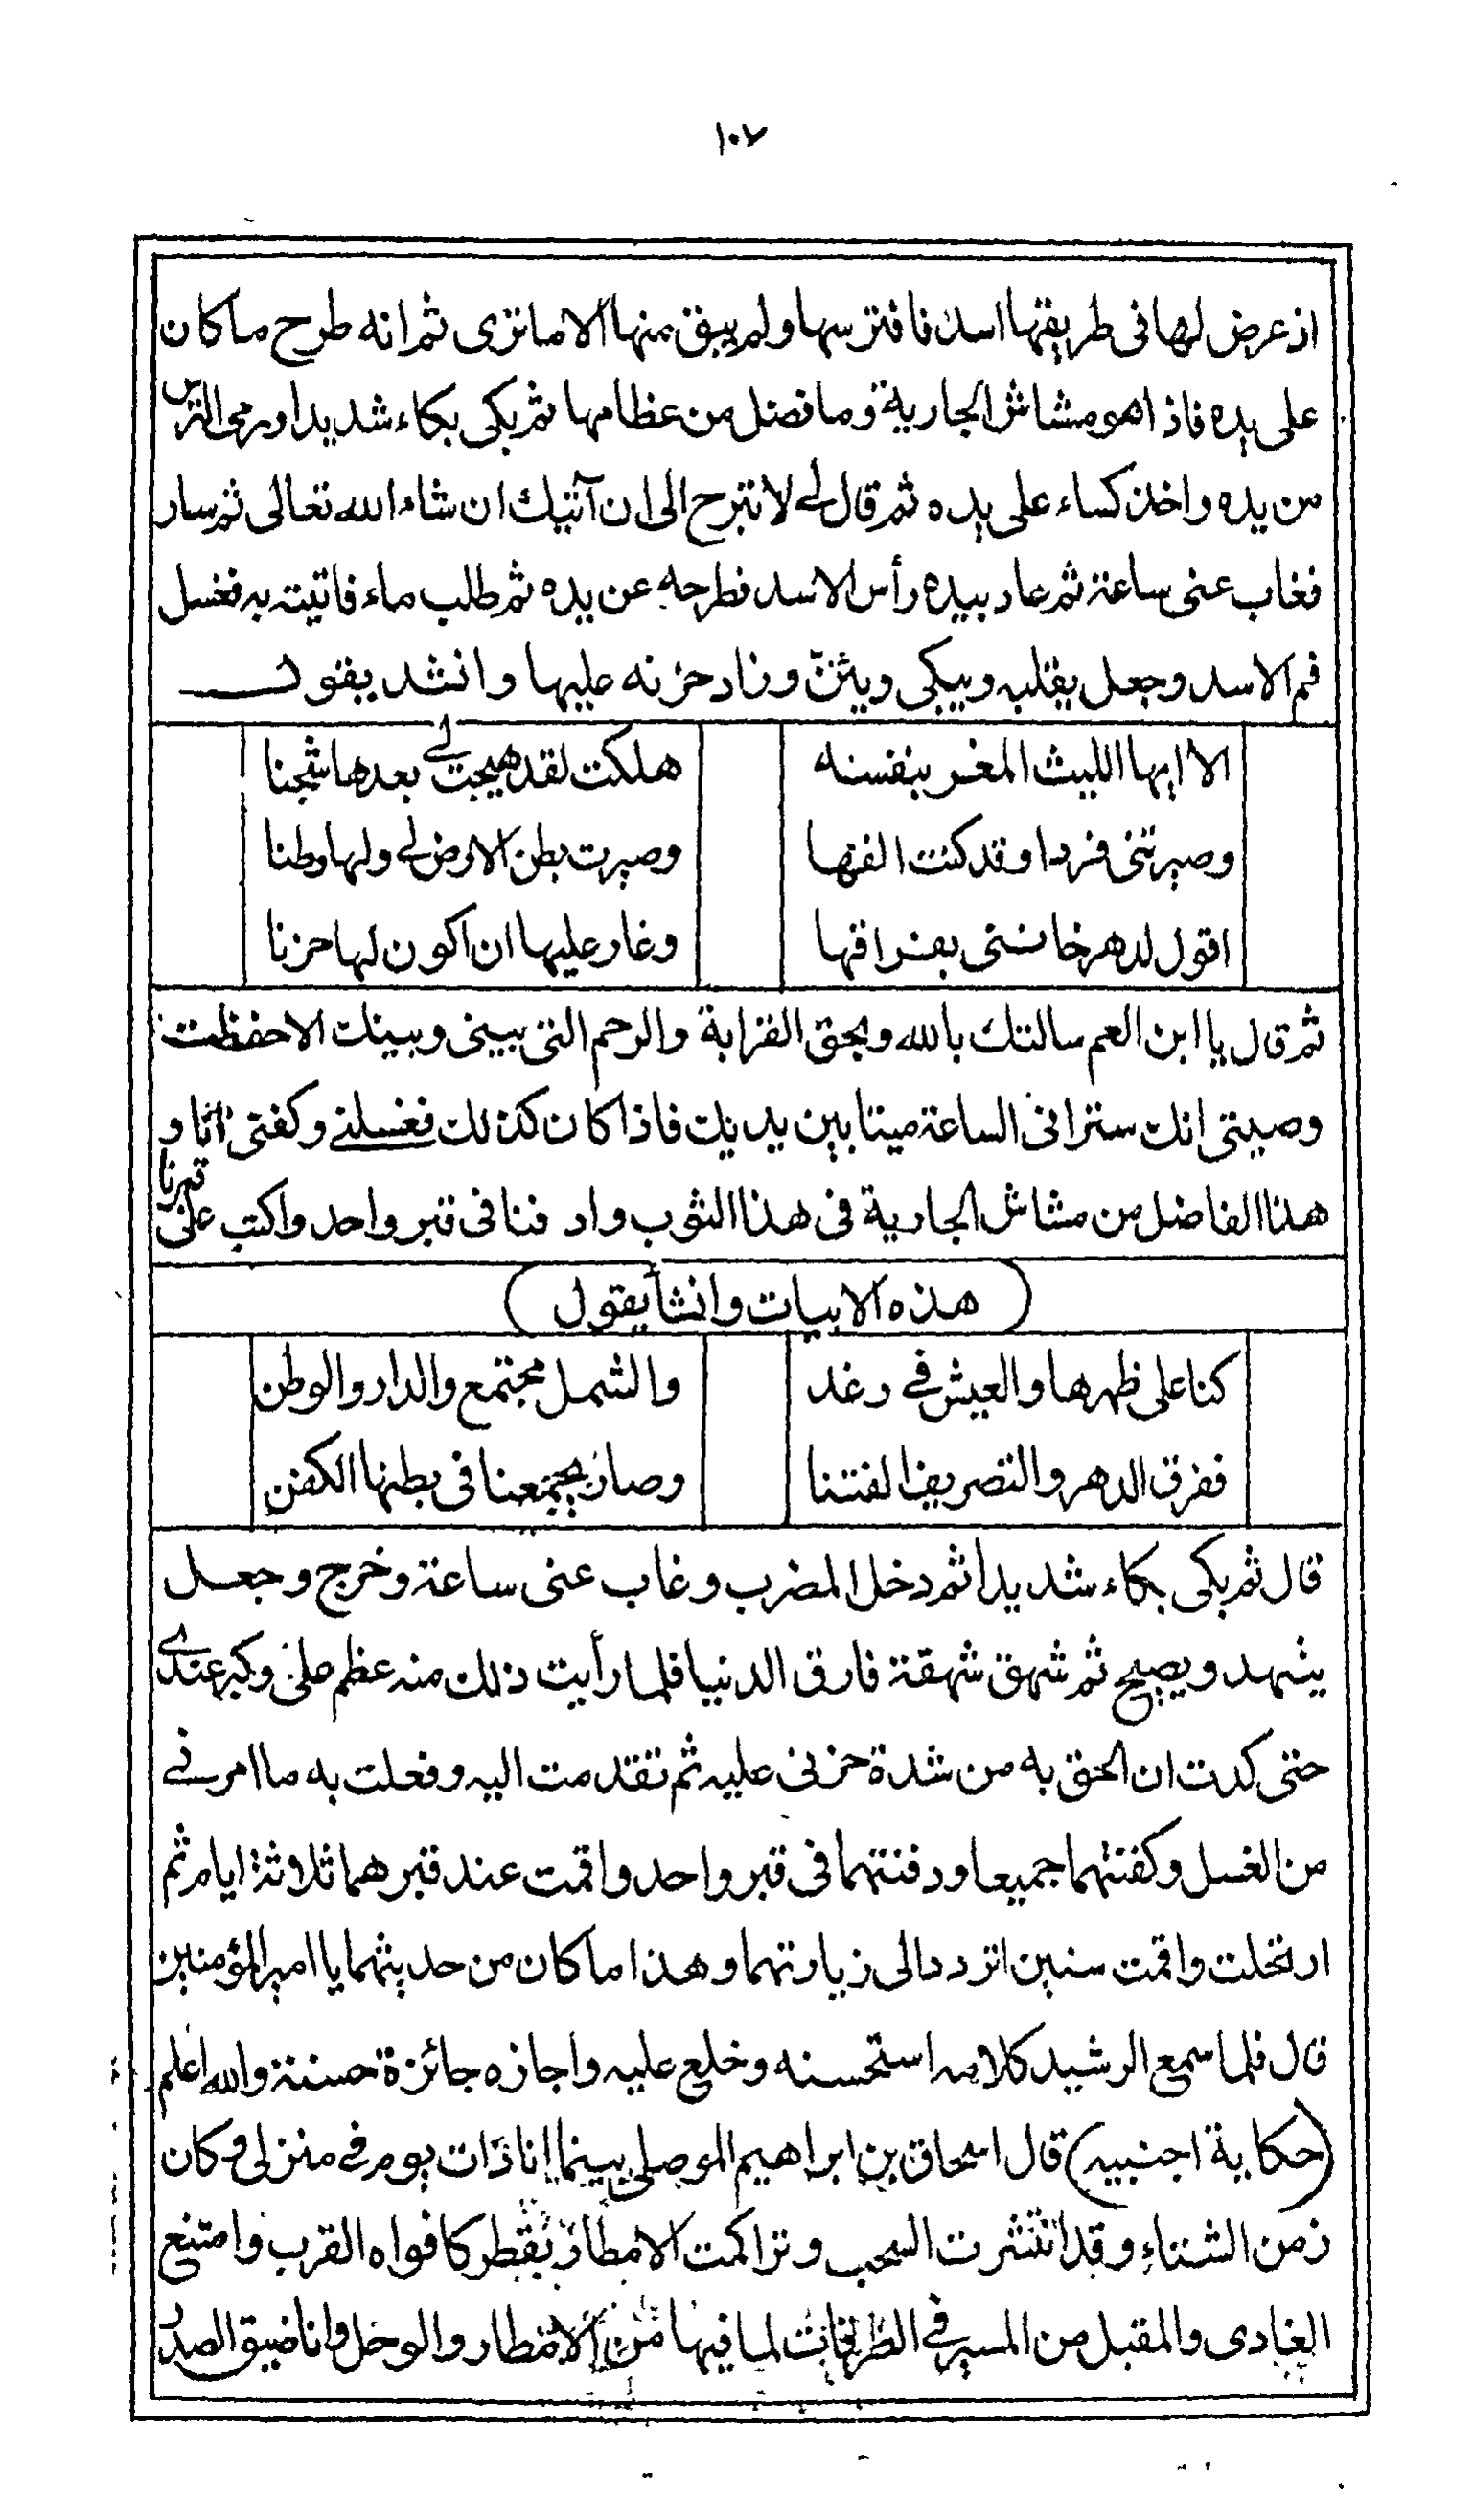 ١٠٧
اذ عرض لها فى طريقها اسد فافترسها ولم يبق منها الا ما ترى ثم انه طرح ما كان
على يده فاذا هو مشاش الجارية وما فضل من عظامها ثم بكى بكاء شديدا ورمى الترس
من يده واخذ كساء على يده ثم قال لى لا تبرح الى ان آتيك ان شاء الله تعالى ثم سار
فغاب عنى ساعة ثم عاد بيده رأس الاسد فطرحه عن يده ثم طلب ماء فاتيته به فغسل
فم الاسد وجعل يقلبه ويبكى ويئنّ وزاد حزنه عليها وانشد يقول
الا ايها الليث المغر بنفسه هلكت لقد هيجت لى بعدها شجنا
وصيرتنى فردا وقد كنت الفها وصيرت بطن الارض لى ولها وطنا
اقول لدهر خاننى بفراقها وغار عليها ان اكون لها حزنا
ثم قال يا ابن العم سالتك بالله وبحق القرابة والرحم التى بينى وبينك الا حفظت
وصيتى انك سترانى الساعة ميتا بين يديك فاذا كان كذلك فغسلنى وكفنى انا و
هذا الفاضل من مشاش الجارية فى هذا الثوب وادفنا فى قبر واحد واكتب على قبرنا
(هذه الابيات وانشأ يقول)
كنا على ظهرها والعيش فى رغد والشمل مجتمع والدار والوطن
ففرق الدهر والتصريف الفتنا وصار يجمعنا فى بطنها الكفن
قال ثم بكى بكاء شديدا ثم دخل المضرب وغاب عنى ساعة وخرج وجعل
يشهد ويصيح ثم شهق شهقة فارق الدنيا فلما رأيت ذلك منه عظم على وكبر عندى
حتى كدت ان الحق به من شدة حزنى عليه ثم تقدمت اليه وفعلت به ما امرنى
من الغسل وكفنتهما جميعا ودفنتهما فى قبر واحد واقمت عند قبرهما ثلاثة ايام ثم
ارتحلت واقمت سنين اتردد الى زيارتهما وهذا ما كان من حديثهما يا امير المؤمنين
قال فلما سمع الرشيد كلامه استحسنه وخلع عليه واجازه جائزة حسنة والله اعلم
(حكاية اجنبيه) قال اسحاق بن ابراهيم الموصلى بينما انا ذات يوم فى منزلى وكان
زمن الشتاء وقد انتشرت السحب وتراكمت الامطار بقطر كافواه القرب وامتنع
الغادى والمقبل من المسير فى الطرقات لما فيها من الامطار والوحل وانا ضيق الصدر